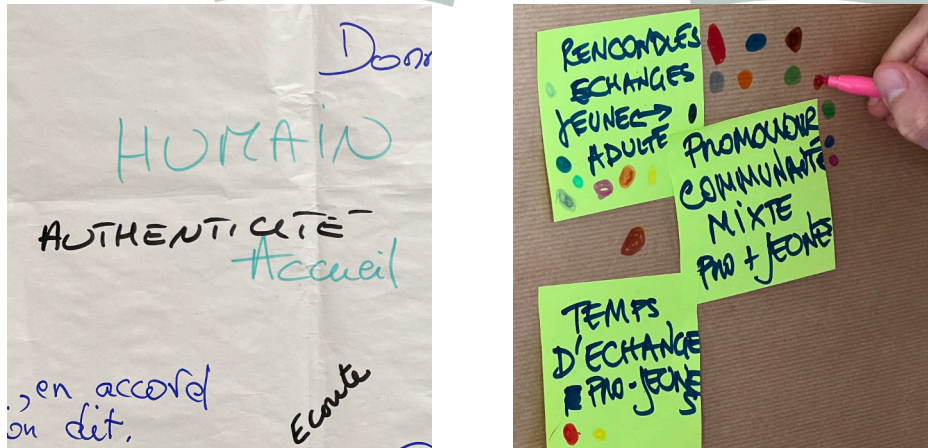 Donn
HUMAIN
AUTHENTICITÉ
Accueil
, en accord
on dit.
Ecoute
RENCONDRES
ECHANGES
JEUNE ↔
ADULTE
PROMOUVOIR
COMMUNAUTÉ
MIXTE
PRO + JEUNES
TEMPS
D'ECHANGE
PRO-JEUNES